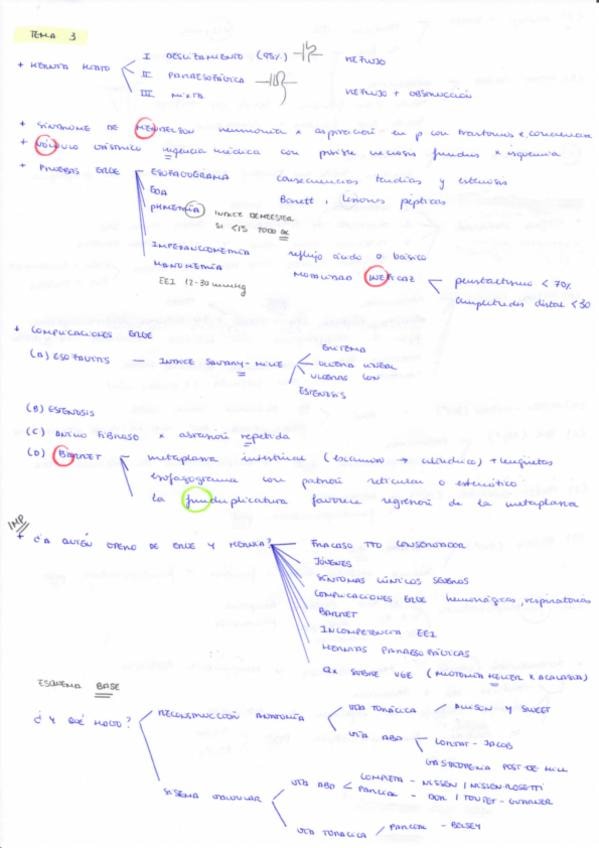 TEMA 3
+ HERNIA HIATO
I DESLIZAMIENTO (95%) REFLUJO
II PARAESOFÁGICA
III MIXTA REFLUJO + OBSTRUCCIÓN
+ SÍNDROME DE MENDELSON neumonía x aspiración en p con trastornos x conciencia
+ VÓLVULO GÁSTRICO urgencia médica con posible necrosis fundus x isquemia
+ PRUEBAS ERGE
ESOFAGOGRAMA consecuencias tardías y estenosis
EDA Barett, lesiones pépticas
PHMETRÍA ÍNDICE DEMEESTER
SI <15 TODO OK
IMPEDANCIOMETRÍA reflujo ácido o básico
MANOMETRÍA MOTILIDAD INEFICAZ peristaltismo < 70%
EEI 12-30 mmHg amplitudes distal < 30
+ COMPLICACIONES ERGE
(A) ESOFAGITIS — ÍNDICE SAVARY-MILLE
ERITEMA
ÚLCERA LINEAL
ÚLCERAS CON
ESTENOSIS
(B) ESTENOSIS
(C) ANILLO FIBROSO x abrasión repetida
(D) BARRET metaplasia intestinal (escamoso → cilíndrico) + lengüetas
esofagograma con patrón reticular o estenótico
la funduplicatura favorece regresión de la metaplasia
IMP
+ ¿A QUIÉN OPERO DE ERGE Y HERNIA?
FRACASO TTO CONSERVADOR
JÓVENES
SÍNTOMAS CLÍNICOS SEVEROS
COMPLICACIONES ERGE hemorrágicas, respiratorias
BARRET
INCOMPETENCIA EEI
HERNIAS PARAESOFÁGICAS
QX SOBRE UGE (MIOTOMÍA HELLER X ACALASIA)
ESQUEMA BASE
¿Y QUÉ HAGO?
RECONSTRUCCIÓN ANATOMÍA
VÍA TORÁCICA / ALLISON Y SWEET
VÍA ABD
LORTAT-JACOB
GASTROPEXIA POST DE HILL
SISTEMA VALVULAR
VÍA ABD
COMPLETA - NISSEN / NISSEN-ROSETTI
PARCIAL - DOR / TOUPET-GUARNER
VÍA TORÁCICA / PARCIAL - BELSEY